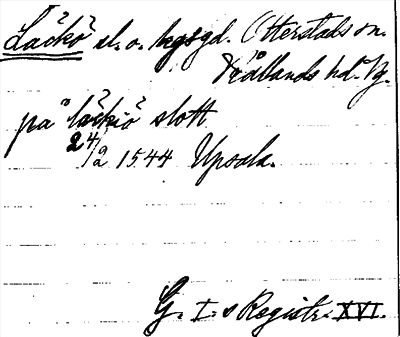 Läckö sl. o. kgsgd. Otterstads sn.
Kållands hd. Vg.
på "läckiö" slott
24/2 1544 Upsala.
G. I:s Registr. XVI.